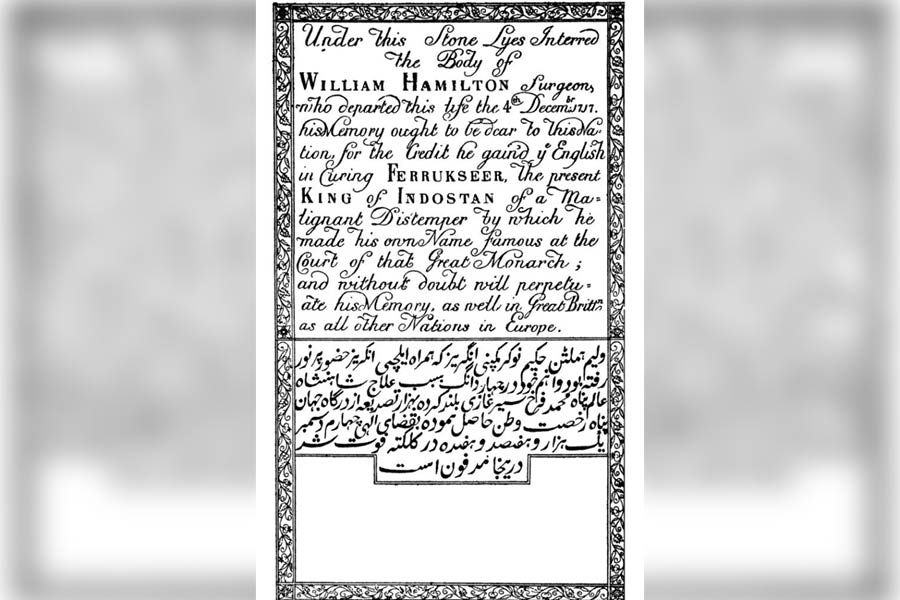 Under this Stone Lyes Interred
the Body of
WILLIAM HAMILTON Surgeon,
who departed this life the 4th Decembr 1717.
his Memory ought to be dear to this Na-
tion, for the Credit he gain'd ye English
in Curing FERRUKSEER, the present
KING of INDOSTAN of a Ma=
lignant Distemper by which he
made his own Name famous at the
Court of that Great Monarch ;
and without doubt will perpetu=
ate his Memory, as well in Great Brittn
as all other Nations in Europe.
ولیم هملتن حکیم نوکر کمپنی انگریز که همراه ایلچی انگریز حضور پر نور
رفته بود و اسم خود در چهار دانگ بسبب علاج شاهنشاه
عالم پناه محمد فرخ سیر غازی بلند کرده بهزار تصدیعه از درگاه جهان
پناه رخصت وطن حاصل نموده بقضای الهی چهارم دسمبر
یک هزار و هفصد و هفده در کلکته فوت شد
دریخا مدفون است